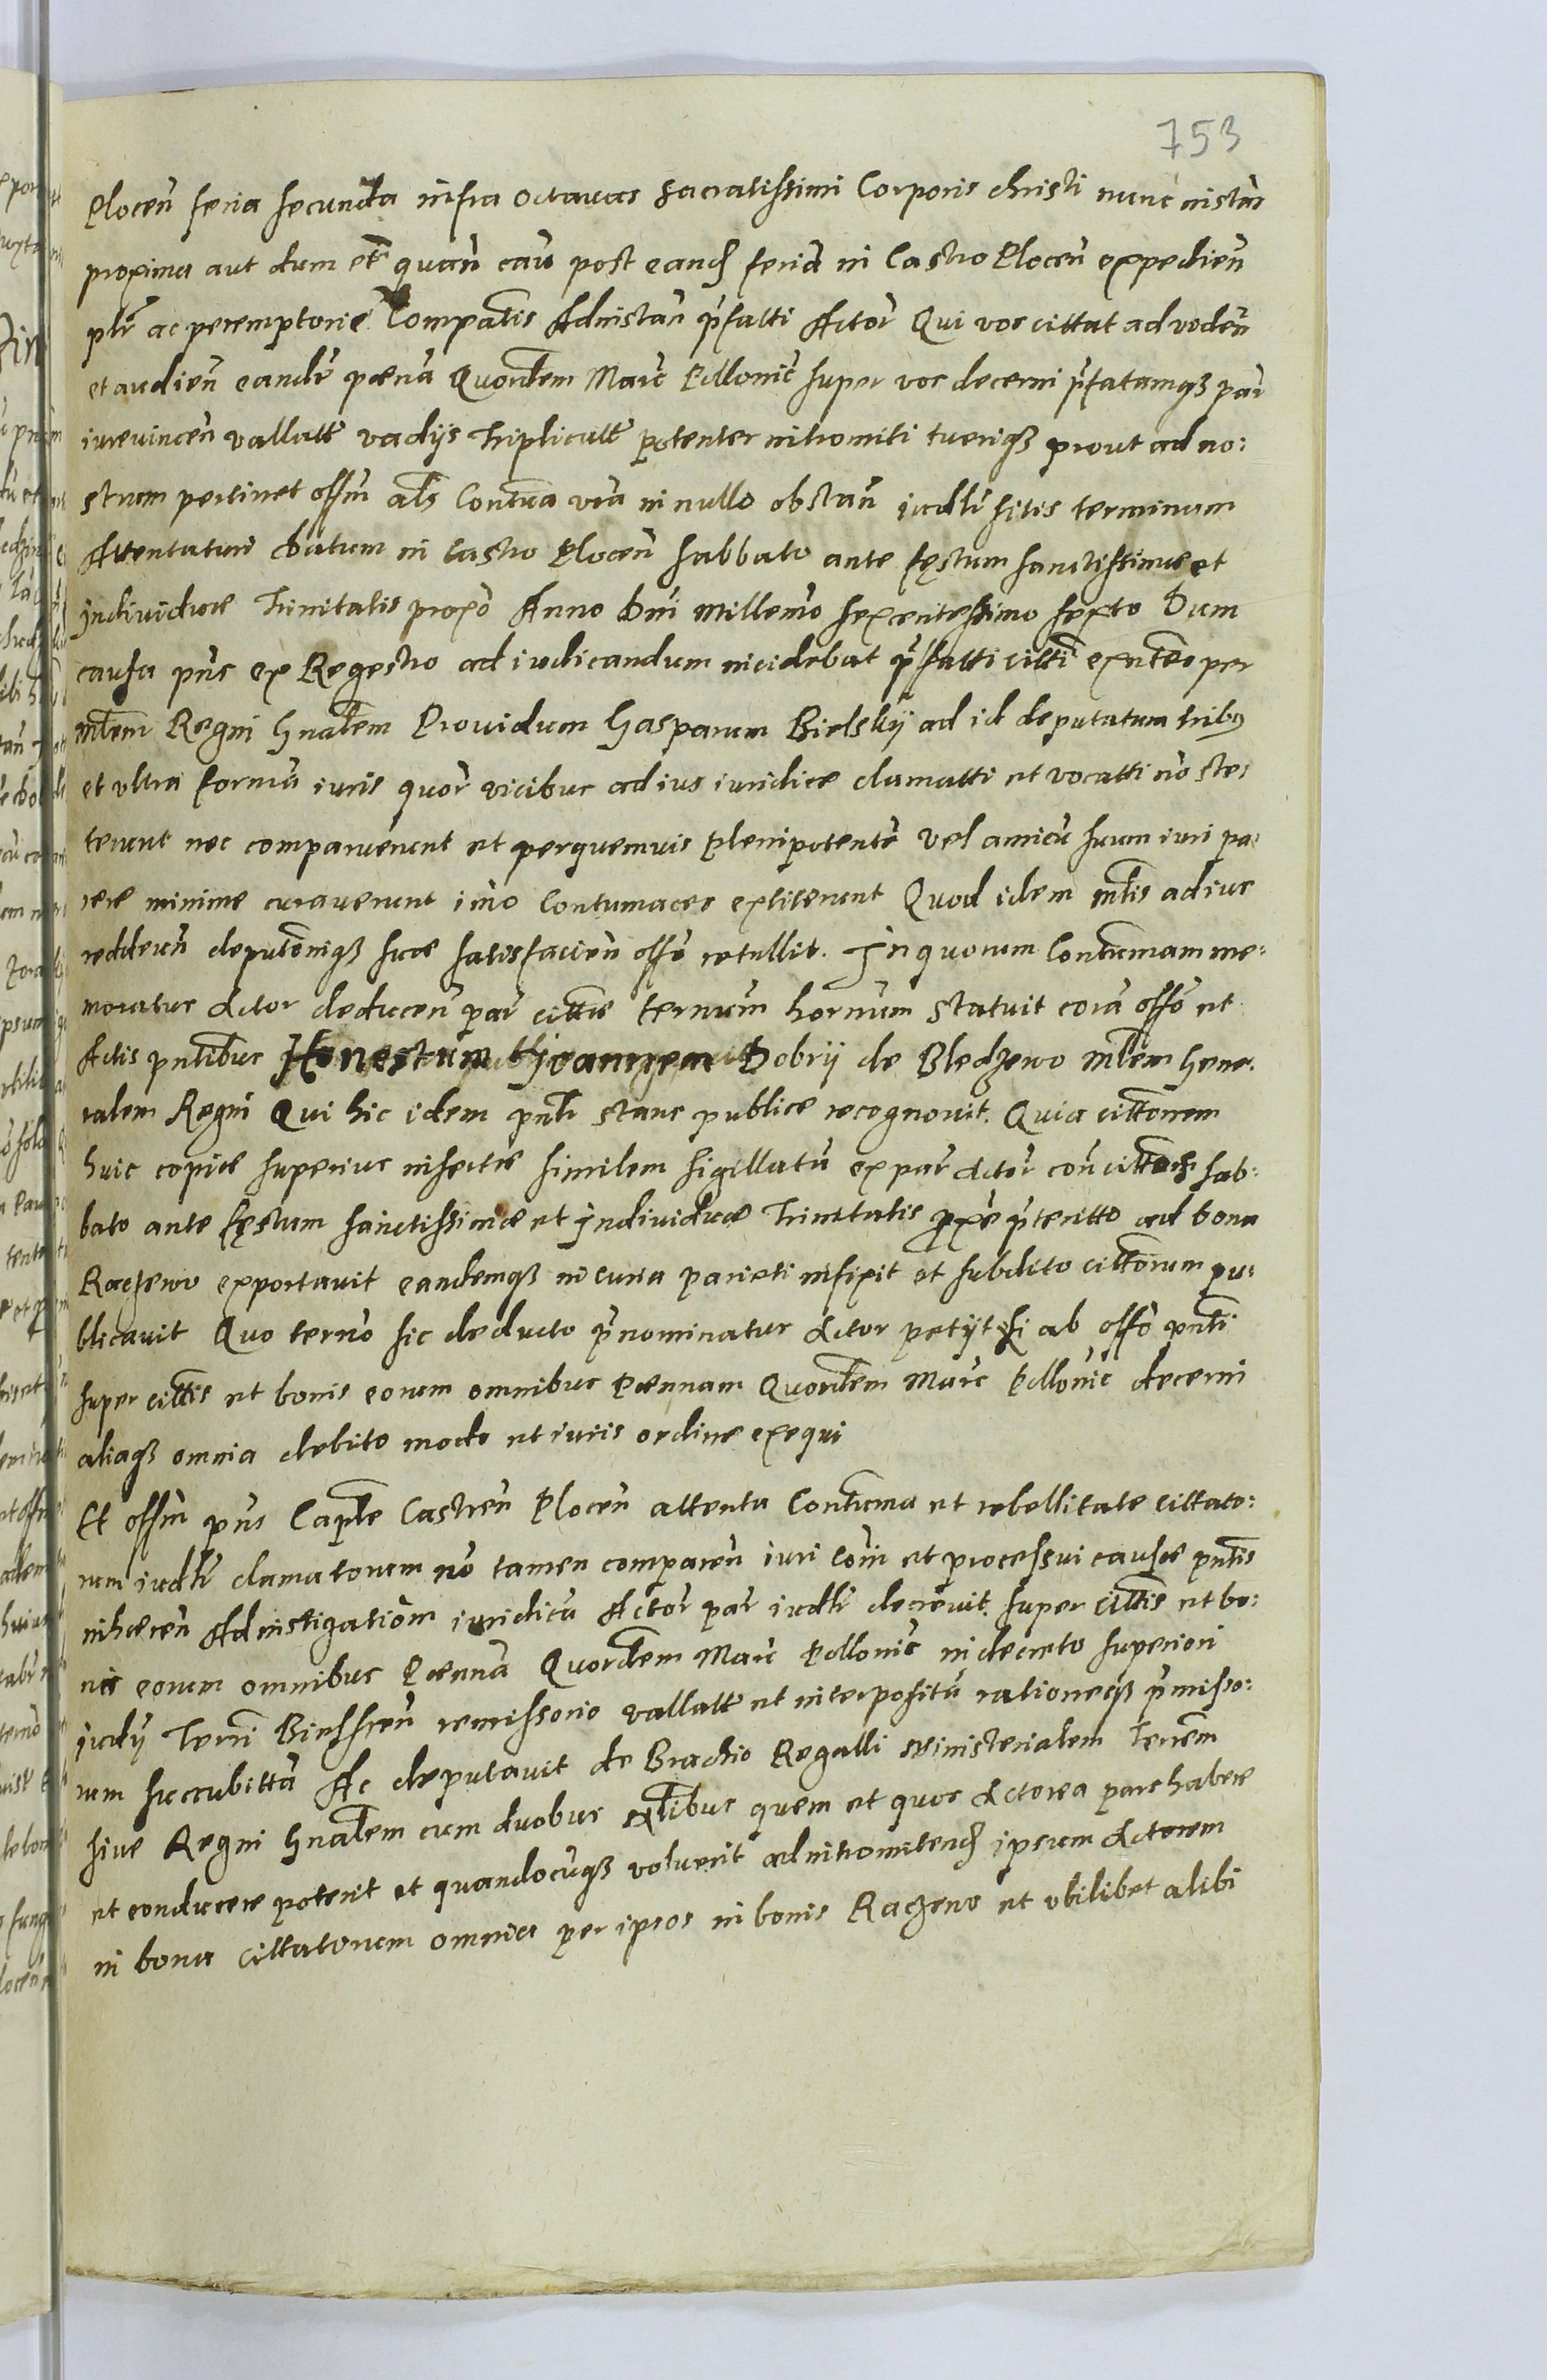 753
Plocen̄ feria secunda infra octavas sacratissimi Corporis christi nunc instan̄
proxima aut dum et quan̄ cau post eand feriā in Castro Plocen̄ expedien̄
pltr ac peremptorie Compatis Adinstan̄ p̄fatti Actor Qui vos cittat ad viden̄
et audien̄ eandē pœnā Quordem Marc Pollonic super vos decerni p̄fatamqȝ par
iurevincen̄ vallatt vadijs triplicatt potenter intromitti tueriqȝ prout ad no:
strum pertinet offm als Contuma vrā in nullo obstan̄ iudlr sitis terminum
Attentaturi Datum in Castro Plocen̄ sabbato ante fęstum sanctissimæ et
Individuæ Trinitatis proxō Anno Dni Millemo sexcentessimo sexto Dum
causa pns ex Regestro ad iudicandum incidebat p̄fatti citti exnteo per
mlem Regni Gnalem Providum Gasparum Bielskij ad id deputatum tribꝰ
et vltra formā iuris quor vicibus ad ius iuridice clamatti et vocatti nō ste:
terunt nec comparuerunt et perquemuis plenipotentē vel amicū suum iuri pa:
rere minime curauerunt imo Contumaces extiterunt Quod idem mlis ad ius
reddeun̄ deputōniqȝ suæ satisfacien̄ offō retullit. In quorum Contumam me:
moratus Actor deducen̄ par cittæ termum hornum statuit corā offō et
Actis pntibus Honestum Ioannem Dobrij de Bledzewo mlem Gene:
ralem Regni Qui hic idem pntr stans publice recognouit. Quia cittonem
huic copiæ superius insertæ similem sigillatū ex par Actor con cittos sab:
bato ante fęstum sanctissimæ et Individuæ Trinitatis pxe p̄teritto ad bona
Raczewo exportauit eandemqȝ in curia parieti infixit et subdito cittorum pu:
blicauit Quo termo sic deducto p̄nominatus Actor petijt si ab offō pnti
super cittis et bonis eorum omnibus Pœnnam Quordem Marc Pollonic decerni
aliaqȝ omnia debito modo et iuris ordine exequi
Et offm pns Caple Castren̄ Plocen̄ attenta Contuma et rebellitate cittato:
rum iudlr clamatorum nō tamen comparen̄ iuri Com̄ et processui causæ pntis
inhæren̄ Ad instigatiōm iuridicā Actor par iudlr decreuit super cittis et bo:
nis eorum omnibus Pœnnā Quordem Marc Pollonic in decreto superiori
iudij Terri Bielscen̄ remissorio vallatt et interpositū rationeqȝ p̄misso:
rum succubittā Ac deputauit de Brachio Regalli Ministerialem Terrem
siue Regni Gnalem cum duobus nlibus quem et quos Actorea pars habere
et conducere poterit et quandocūqȝ voluerit ad intromitend ipsum Actorem
in bona cittatorum omnia per ipsos in bonis Raczewo et vbilibet alibi